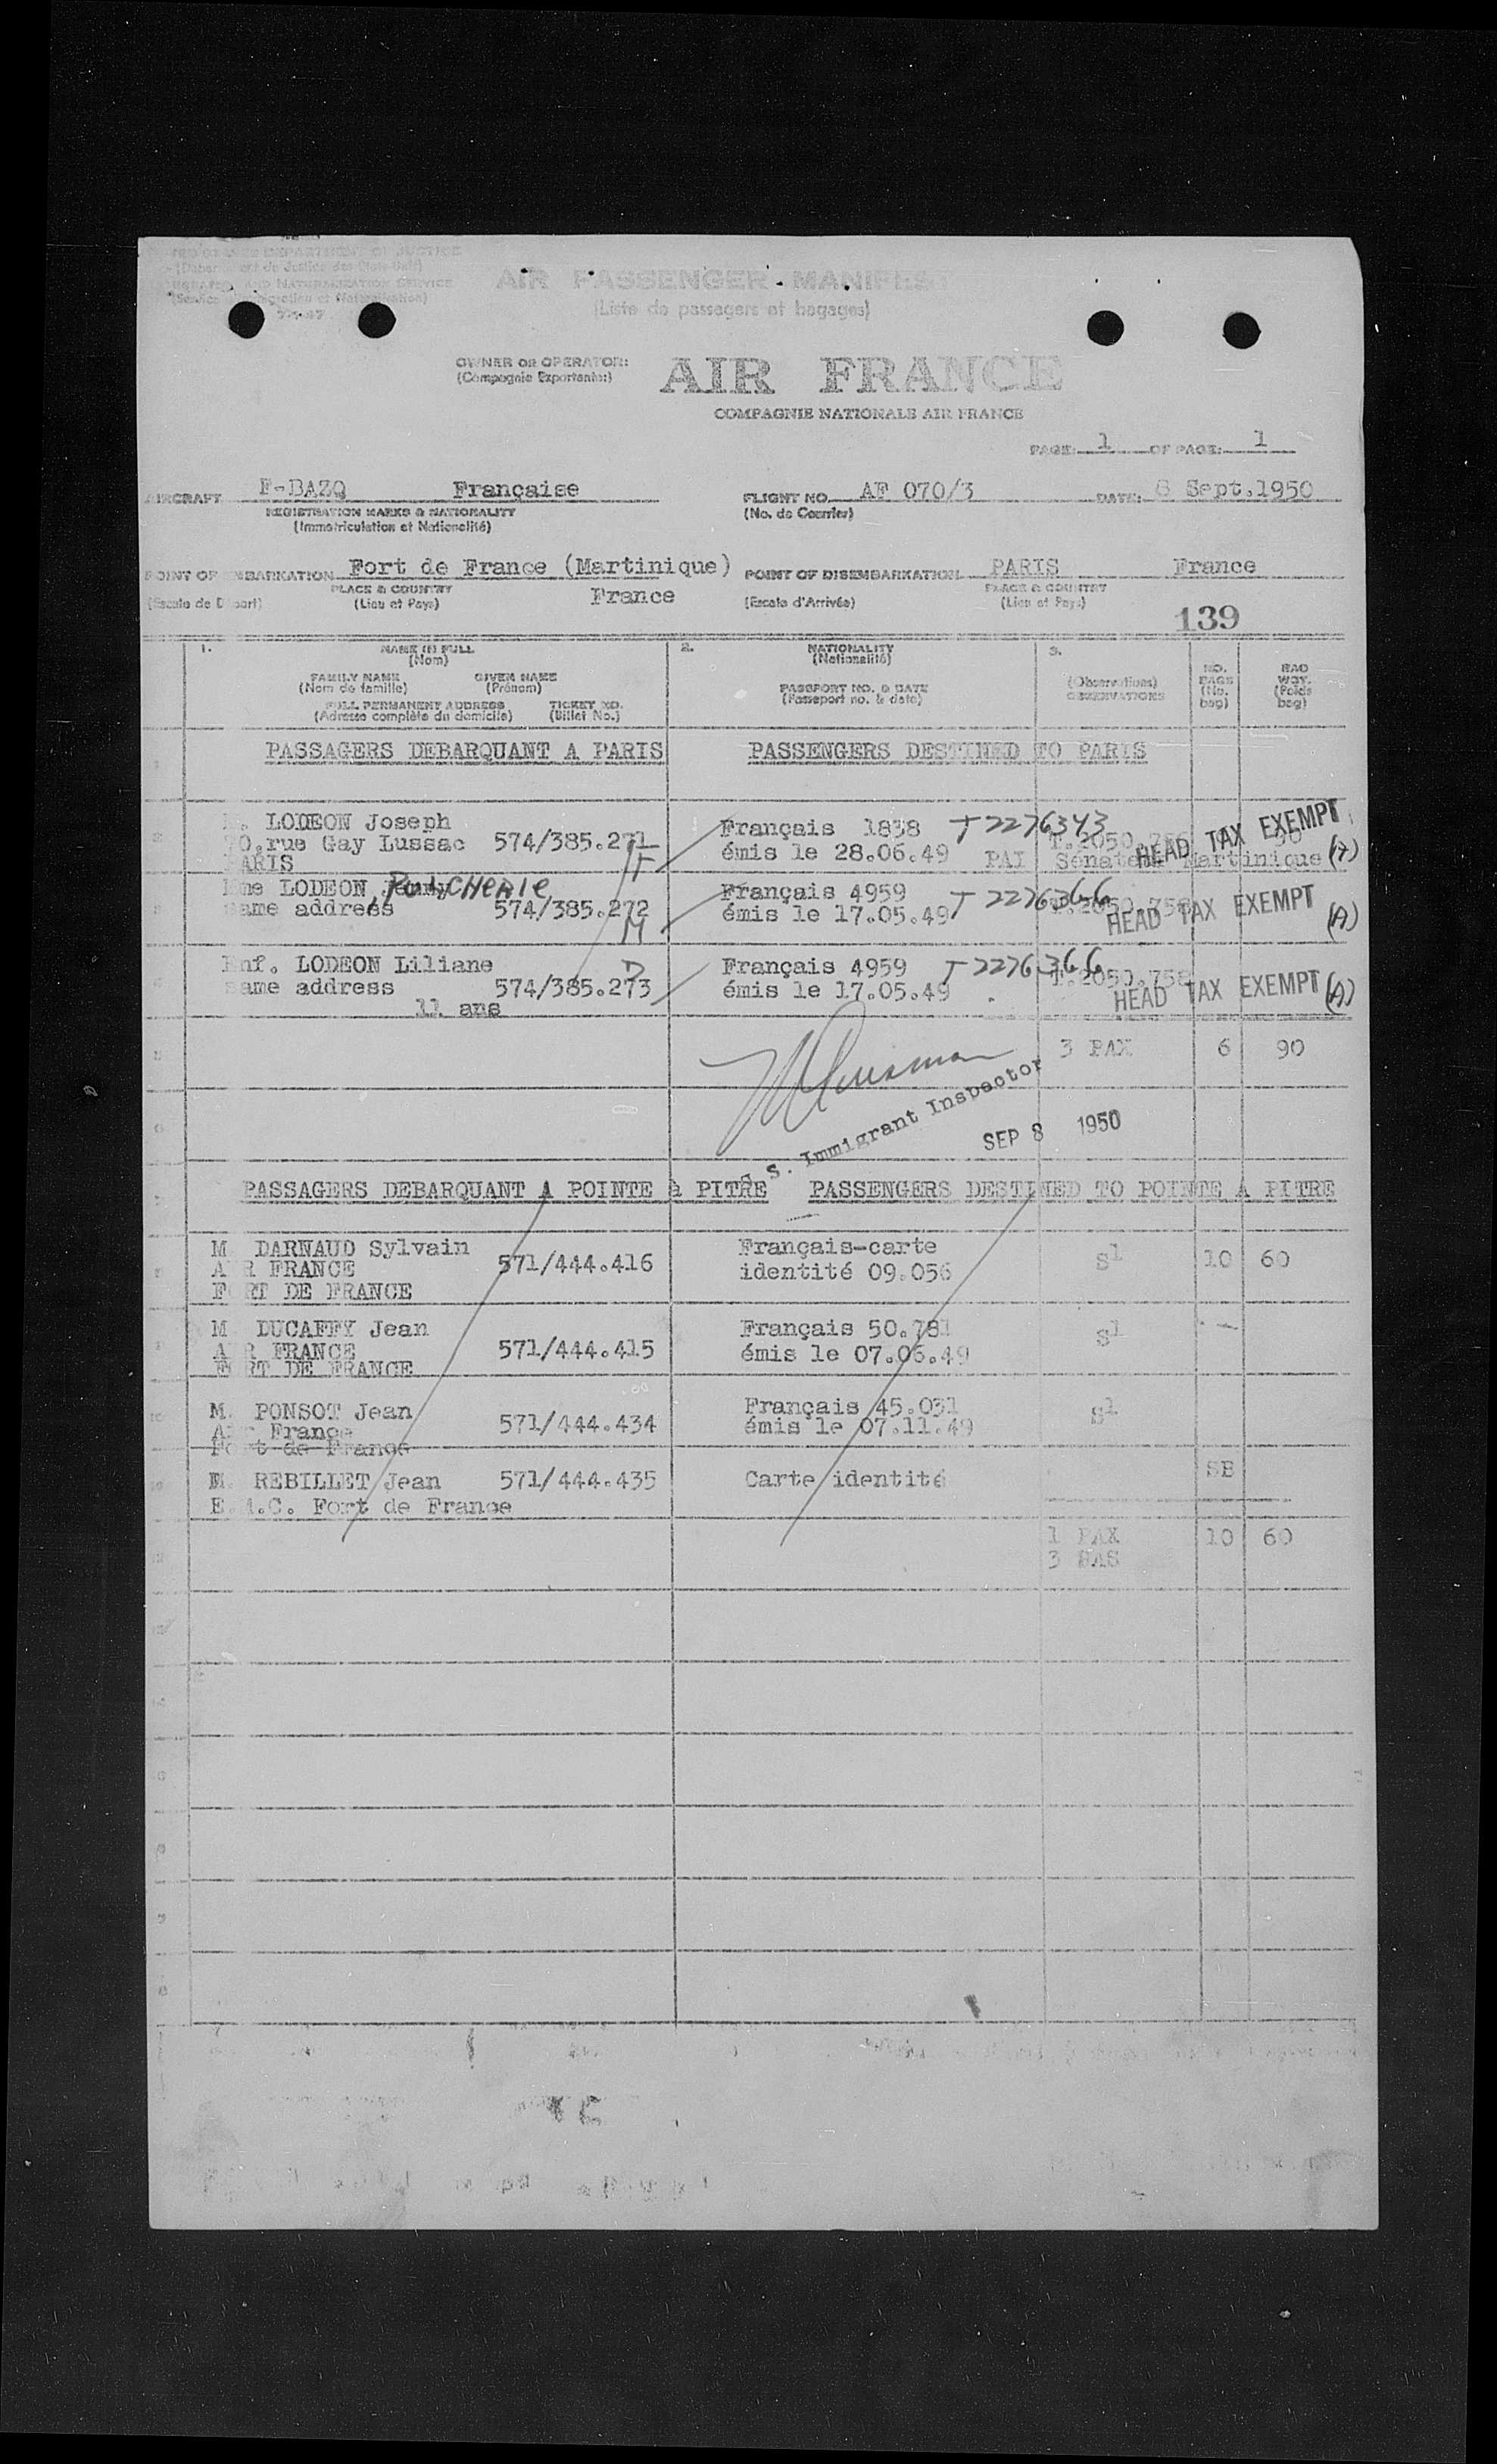 DEPARTMENT OF JUSTICE
AND NATURALIZATION SERVICE
AIR PASSENGER MANIFEST
(Liste de passagers et bagages)
OWNER OR OPERATOR:
(Compagnie Exportante:)
AIR FRANCE
COMPAGNIE NATIONALE AIR FRANCE
PAGE: 1 OF PAGE: 1
AIRCRAFT F-BAZQ Française FLIGHT NO. AF 070/3 DATE: 8 Sept.1950
REGISTRATION MARKS & NATIONALITY (No. de Courrier)
(Immatriculation et Nationalité)
POINT OF EMBARKATION Fort de France (Martinique) POINT OF DISEMBARKATION PARIS France
PLACE & COUNTRY France PLACE & COUNTRY
(Escale de Départ) (Lieu et Pays) (Escale d'Arrivée) (Lieu et Pays)
139
1. NAME IN FULL 2. NATIONALITY 3.
(Nom) (Nationalité)
FAMILY NAME GIVEN NAME PASSPORT NO. & DATE (Observations) NO. BAGS BAG WGT.
(Nom de famille) (Prénom) (Passeport no. & date) OBSERVATIONS (No. bag) (Poids bag)
FULL PERMANENT ADDRESS TICKET NO.
(Adresse complète du domicile) (Billet No.)
PASSAGERS DEBARQUANT A PARIS PASSENGERS DESTINED TO PARIS
LODEON Joseph Français 1838 T2276343
70,rue Gay Lussac 574/385.271 émis le 28.06.49 T.2050.756 90 HEAD TAX EXEMPT
PARIS PAI Sénateur Martinique (A)
Mme LODEON PULCHERIE Français 4959 T2276366
same address 574/385.272 émis le 17.05.49 T.2050.758 HEAD TAX EXEMPT (A)
M
Enf. LODEON Liliane D Français 4959 T2276366
same address 574/385.273 émis le 17.05.49 T.2050.758 HEAD TAX EXEMPT (A)
11 ans
3 PAX 6 90
S. Immigrant Inspector
SEP 8 1950
PASSAGERS DEBARQUANT A POINTE à PITRE PASSENGERS DESTINED TO POINTE A PITRE
M DARNAUD Sylvain 571/444.416 Français-carte S1 10 60
AIR FRANCE identité 09.056
FORT DE FRANCE
M DUCAFFY Jean Français 50.781 S1 -
AIR FRANCE 571/444.415 émis le 07.06.49
FORT DE FRANCE
M. PONSOT Jean 571/444.434 Français 45.031 S1
Air France émis le 07.11.49
Fort de France
M. REBILLET Jean 571/444.435 Carte identité SB
Fort de France
1 PAX 10 60
3 SAS